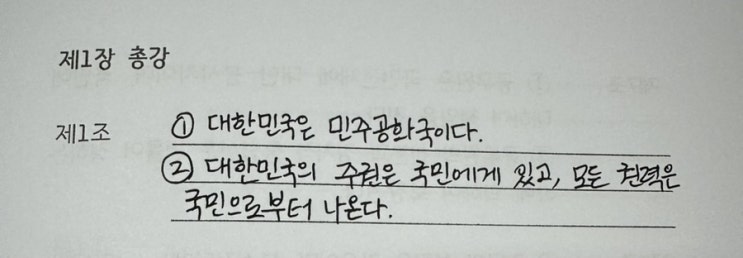 제1장 총강
제1조 ① 대한민국은 민주공화국이다.
② 대한민국의 주권은 국민에게 있고, 모든 권력은
국민으로부터 나온다.